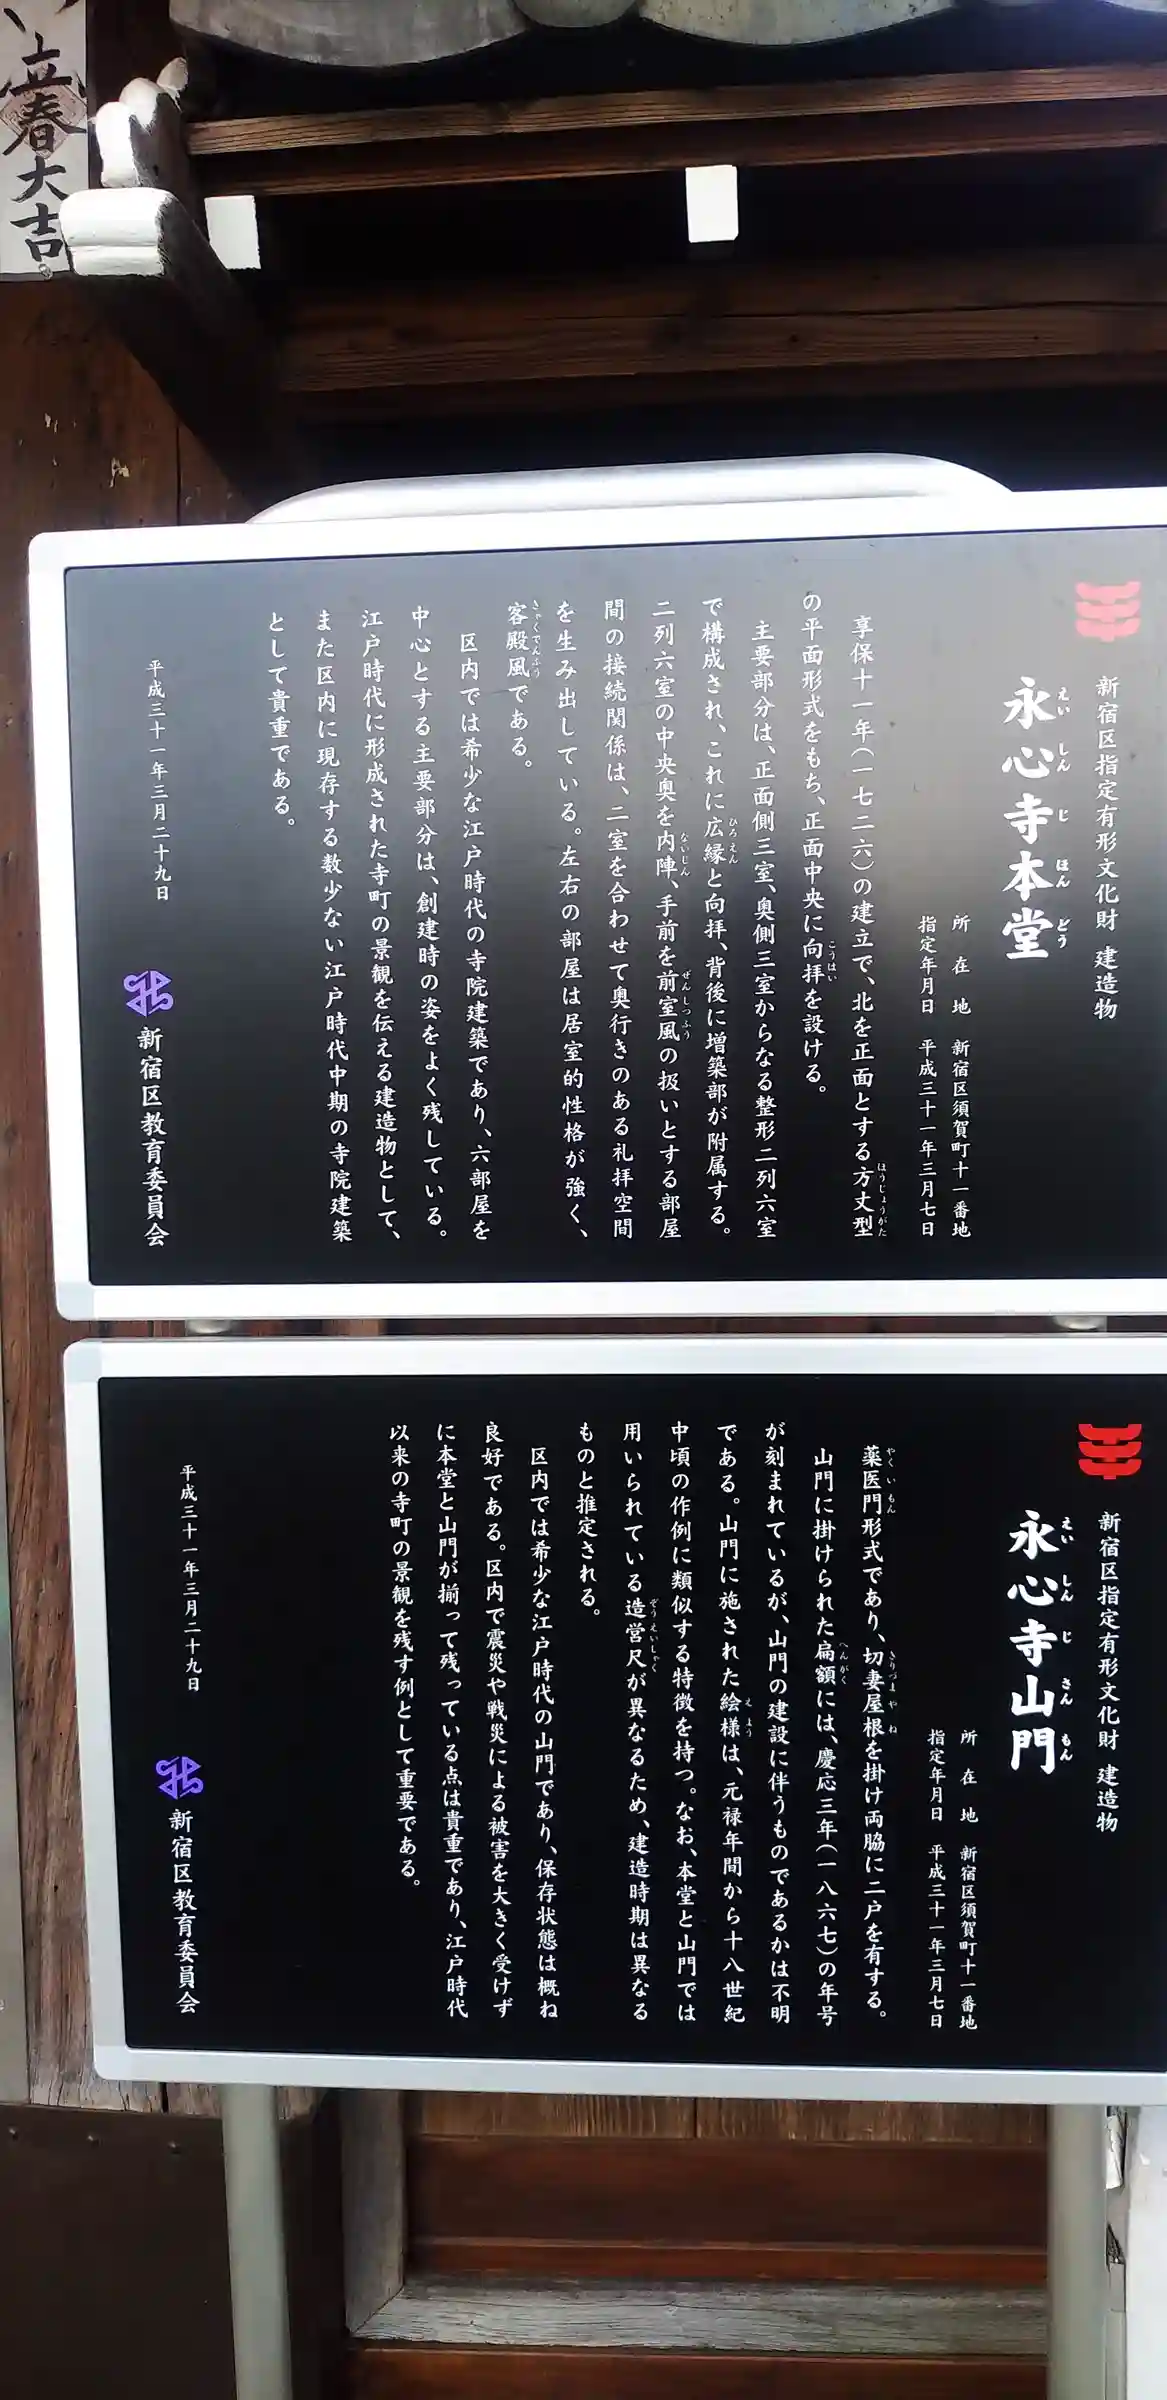 立春大吉
新宿区指定有形文化財 建造物
永心寺本堂
えいしんじほんどう
所在地 新宿区須賀町十一番地
指定年月日 平成三十一年三月七日
享保十一年(一七二六)の建立で、北を正面とする方丈型
ほうじょうがた
の平面形式をもち、正面中央に向拝を設ける。
こうはい
主要部分は、正面側三室、奥側三室からなる整形二列六室
で構成され、これに広縁と向拝、背後に増築部が附属する。
ひろえん
二列六室の中央奥を内陣、手前を前室風の扱いとする部屋
ないじん ぜんしつふう
間の接続関係は、二室を合わせて奥行きのある礼拝空間
を生み出している。左右の部屋は居室的性格が強く、
客殿風である。
きゃくでんふう
区内では希少な江戸時代の寺院建築であり、六部屋を
中心とする主要部分は、創建時の姿をよく残している。
江戸時代に形成された寺町の景観を伝える建造物として、
また区内に現存する数少ない江戸時代中期の寺院建築
として貴重である。
平成三十一年三月二十九日
新宿区教育委員会
新宿区指定有形文化財 建造物
永心寺山門
えいしんじさんもん
所在地 新宿区須賀町十一番地
指定年月日 平成三十一年三月七日
薬医門形式であり、切妻屋根を掛け両脇に二戸を有する。
やくいもん きりづまやね
山門に掛けられた扁額には、慶応三年(一八六七)の年号
へんがく
が刻まれているが、山門の建設に伴うものであるかは不明
である。山門に施された絵様は、元禄年間から十八世紀
えよう
中頃の作例に類似する特徴を持つ。なお、本堂と山門では
用いられている造営尺が異なるため、建造時期は異なる
ぞうえいしゃく
ものと推定される。
区内では希少な江戸時代の山門であり、保存状態は概ね
良好である。区内で震災や戦災による被害を大きく受けず
に本堂と山門が揃って残っている点は貴重であり、江戸時代
以来の寺町の景観を残す例として重要である。
平成三十一年三月二十九日
新宿区教育委員会